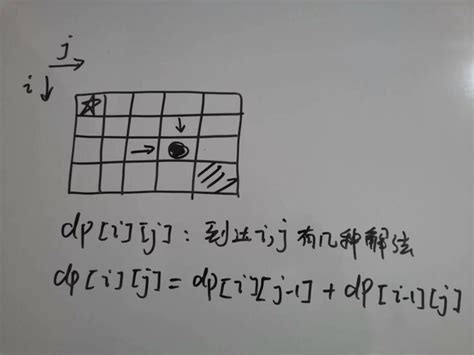 j
i
dp[i][j]: 到达i,j有几种解法
dp[i][j] = dp[i][j-1] + dp[i-1][j]